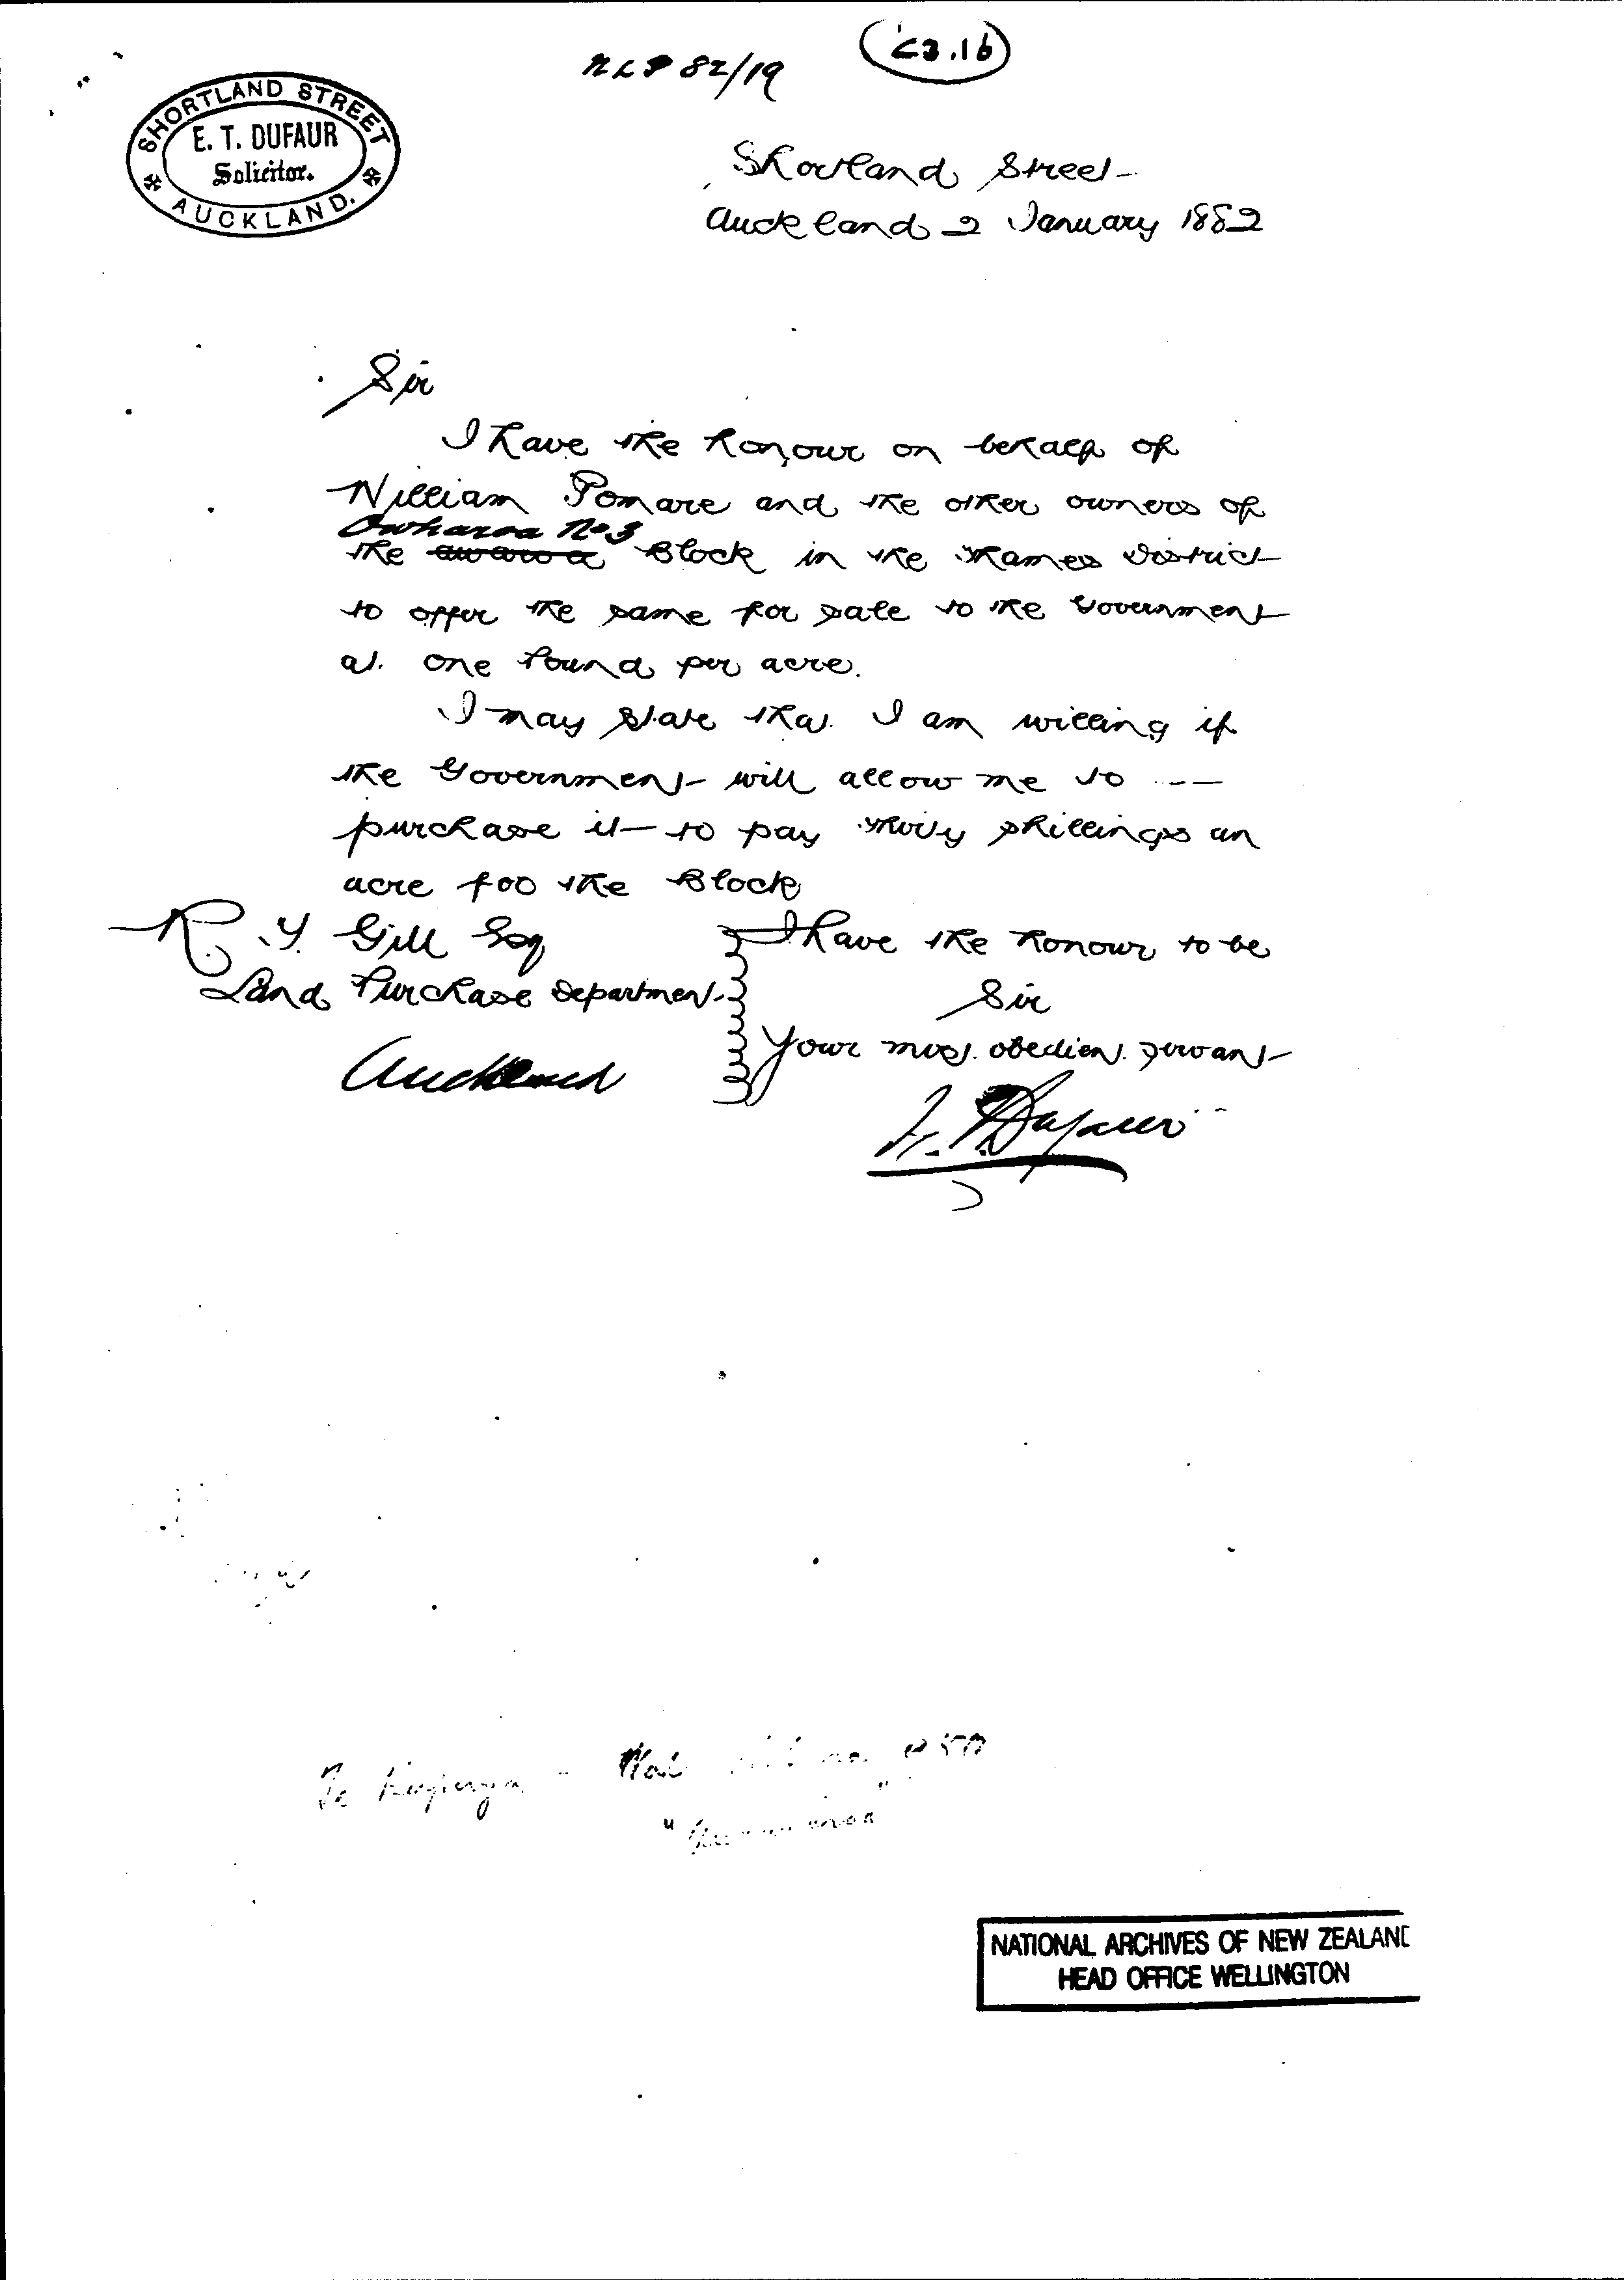 C3.16
NLP 82/19
SHORTLAND STREET
E. T. DUFAUR
Solicitor.
AUCKLAND.
Shortland Street
Auckland 2 January 1882
Sir
I have the honour on behalf of
William Pomare and the other owners of
Owharoa No 3
the awaroa Block in the Thames District
to offer the same for sale to the Government
at one Pound per acre.
I may state that I am willing if
the Government will allow me to
purchase it to pay thirty shillings an
acre for the Block
I have the honour to be
Sir
Your most obedient servant
E. T. Dufaur
R. J. Gill Esq
Land Purchase Department
Auckland
Te
NATIONAL ARCHIVES OF NEW ZEALAND
HEAD OFFICE WELLINGTON